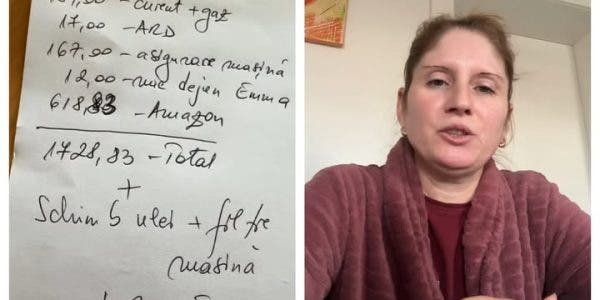 - curent + gaz
17,00 - ARD
167,00 - asigurare mașină
12,00 - mic dejun Emma
618,83 - Amazon
1728,83 - Total
+
Schimb ulei + filtre
mașină